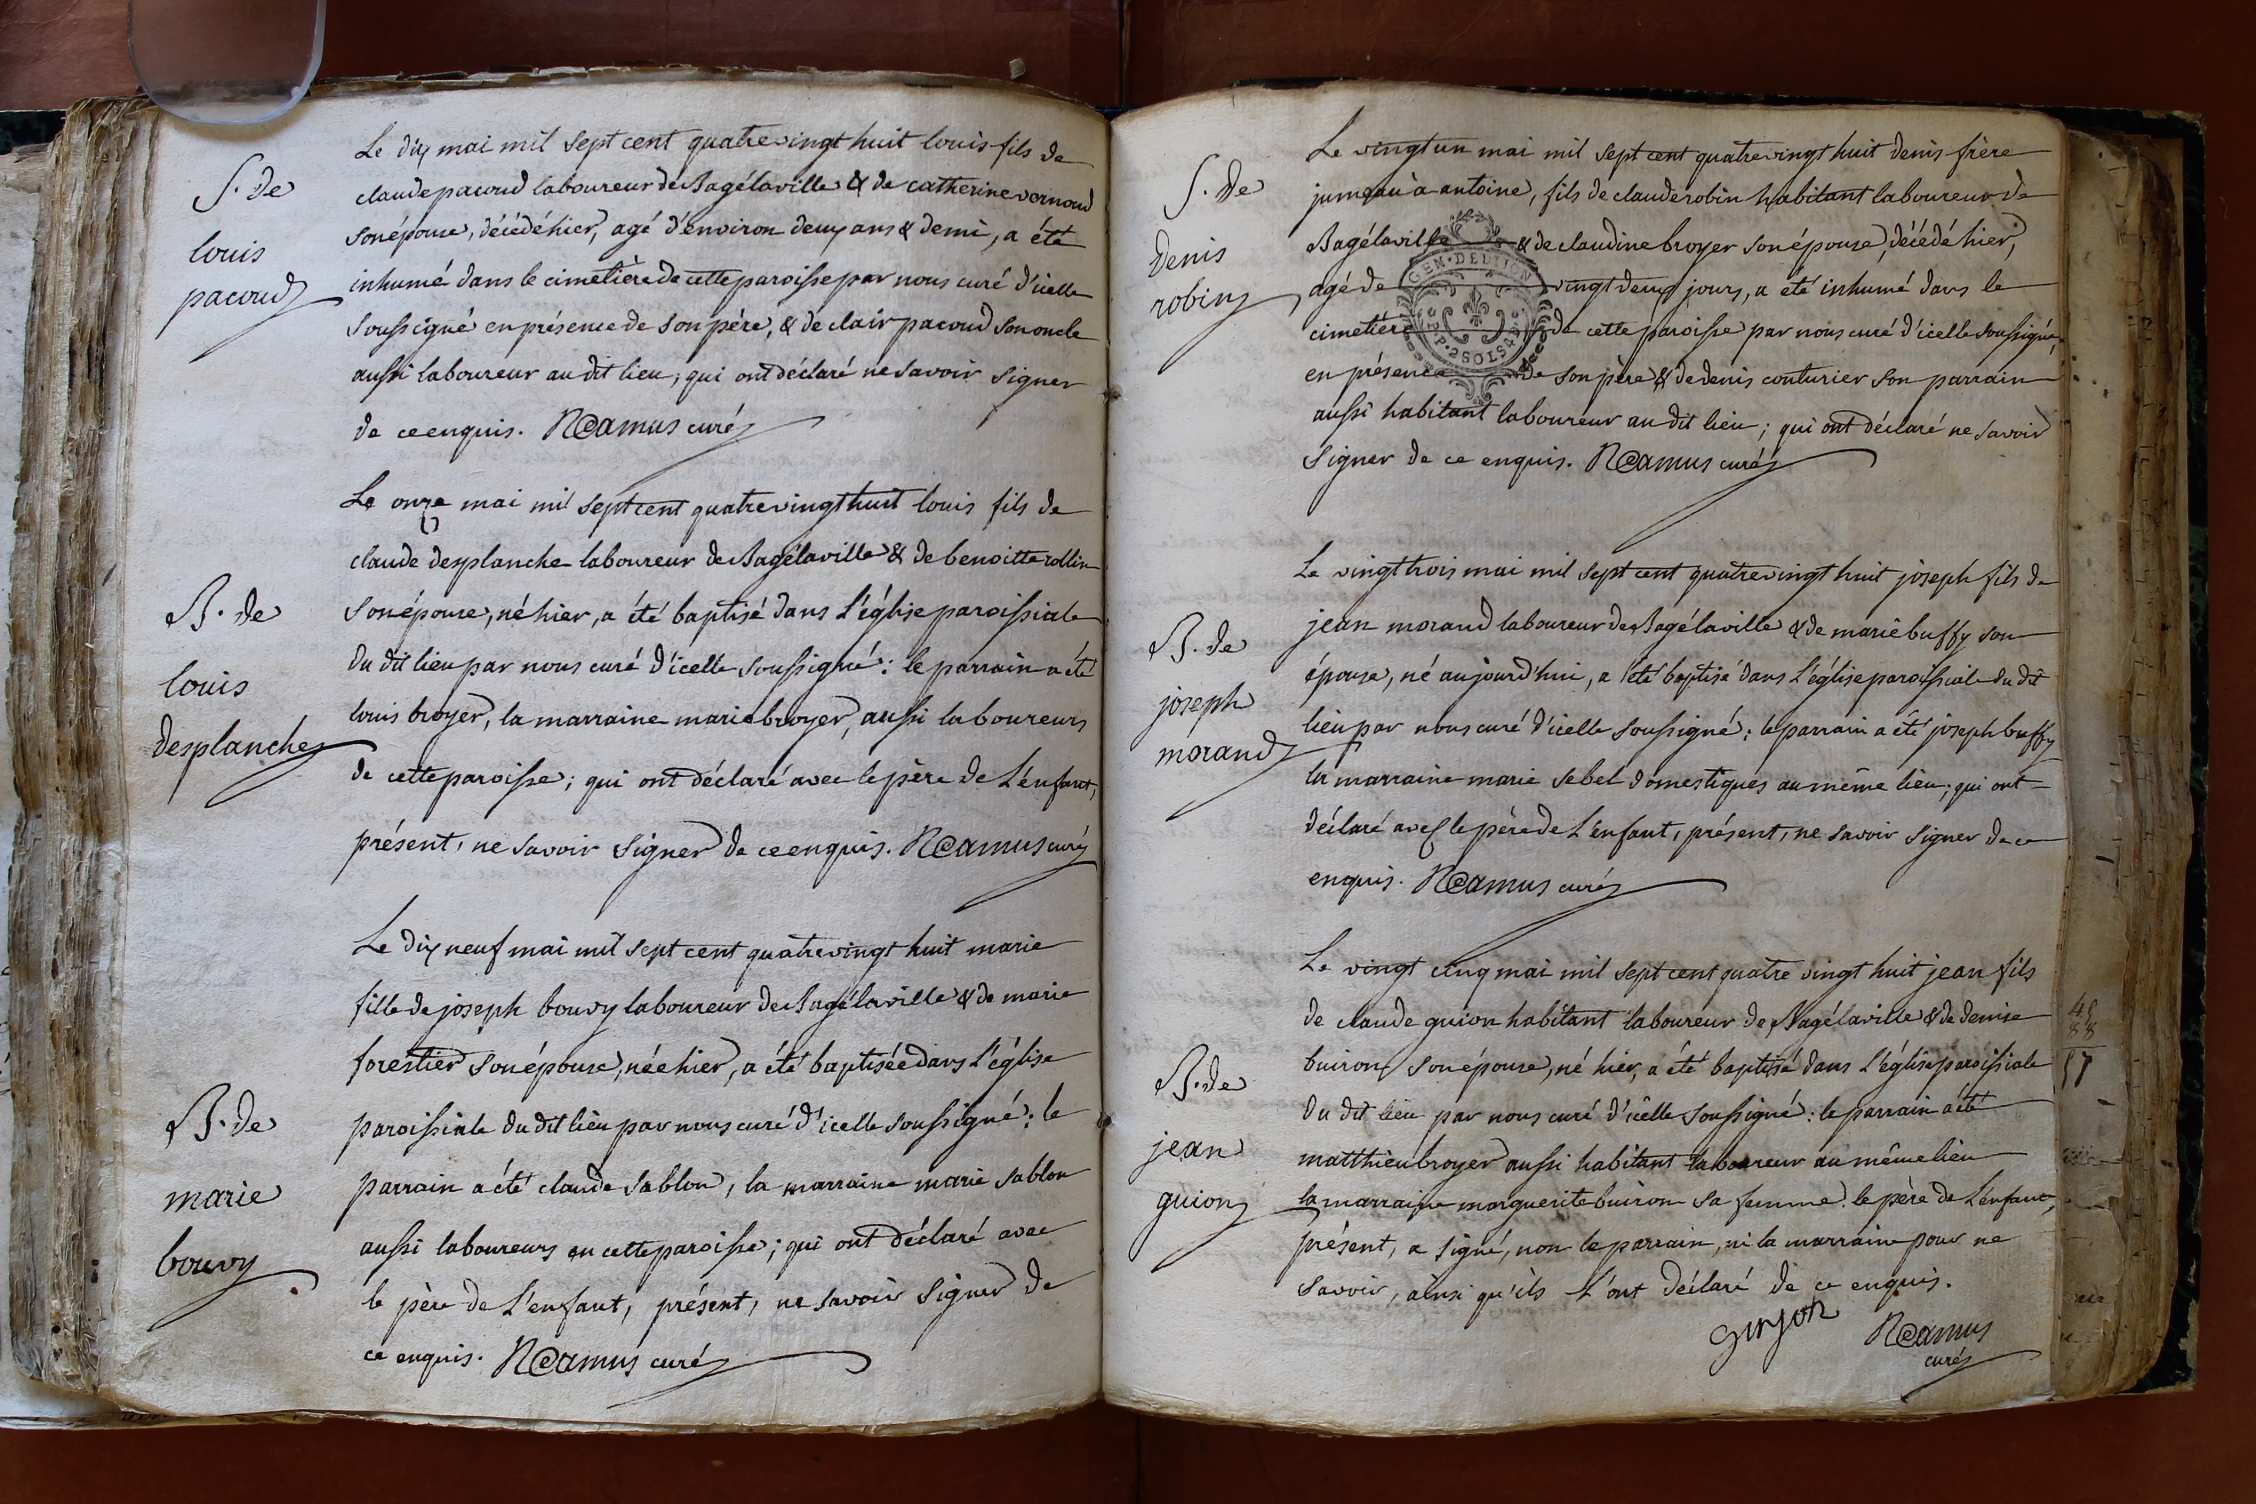 S. de
louis
pacoud
Le dix mai mil sept cent quatre vingt huit louis fils de
claude pacoud laboureur de Bagélaville & de catherine vernoud
son épouse, décédé hier, agé d'environ deux ans & demi, a été
inhumé dans le cimetière de cette paroisse par nous curé d'icelle
soussigné en présence de son père, & de clair pacoud son oncle
aussi laboureur au dit lieu; qui ont déclaré ne savoir signer
de ce enquis. Camus curé
B. de
louis
desplanche
Le onze mai mil sept cent quatre vingt huit louis fils de
claude desplanche laboureur de Bagélaville & de benoitte rollin
son épouse, né hier, a été baptisé dans l'église paroissiale
du dit lieu par nous curé d'icelle soussigné: le parrain a été
louis broyer, la marraine marie broyer, aussi laboureurs
de cette paroisse; qui ont déclaré avec le père de l'enfant,
présent, ne savoir signer de ce enquis. Camus curé
B. de
marie
bouvy
Le dix neuf mai mil sept cent quatre vingt huit marie
fille de joseph bouvy laboureur de Bagélaville & de marie
forestier son épouse, née hier, a été baptisée dans l'église
paroissiale du dit lieu par nous curé d'icelle soussigné: le
parrain a été claude sablon, la marraine marie sablon
aussi laboureurs en cette paroisse; qui ont déclaré avec
le père de l'enfant, présent, ne savoir signer de
ce enquis. Camus curé
S. de
denis
robin
Le vingt un mai mil sept cent quatre vingt huit denis frère
jumeau à antoine, fils de claude robin habitant laboureur de
Bagélaville & de claudine broyer son épouse, décédé hier,
agé de vingt deux jours, a été inhumé dans le
cimetière de cette paroisse par nous curé d'icelle soussigné,
en présence de son père & de denis couturier son parrain
aussi habitant laboureur au dit lieu; qui ont déclaré ne savoir
signer de ce enquis. Camus curé
GEN. DE LYON
2 SOLS 4 D
B. de
joseph
morand
Le vingt trois mai mil sept cent quatre vingt huit joseph fils de
jean morand laboureur de Bagélaville & de marie buffy son
épouse, né aujourd'hui, a été baptisé dans l'église paroissiale du dit
lieu par nous curé d'icelle soussigné: le parrain a été joseph buffy
la marraine marie sebel domestiques au même lieu; qui ont
déclaré avec le père de l'enfant, présent, ne savoir signer de ce
enquis. Camus curé
B. de
jean
guion
Le vingt cinq mai mil sept cent quatre vingt huit jean fils
de claude guion habitant laboureur de Bagélaville & de denise
buiron son épouse, né hier, a été baptisé dans l'église paroissiale
du dit lieu par nous curé d'icelle soussigné: le parrain a été
matthieu broyer aussi habitant laboureur au même lieu
la marraine marguerite buiron sa femme. le père de l'enfant,
présent, a signé, non le parrain, ni la marraine pour ne
savoir, ainsi qu'ils l'ont déclaré de ce enquis.
guyon
Camus
curé